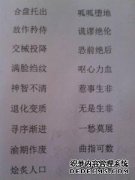 合盘托出 呱呱堕地
故作矜侍 谎谬绝伦
交械投降 恐前绝后
满脸绉纹 呕心力血
神智不清 惹事生非
退化变质 无是生非
寻序渐进 一愁莫展
渝期作废 曲指可数
烩炙人口